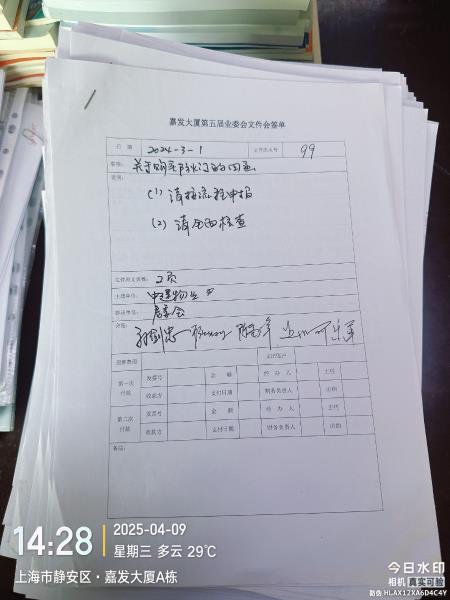 嘉发大厦第五届业委会文件会签单
日期 2024-3-1 文件流水号 99
事项: 关于购买 的回函
说明:
(1) 请按流程申报
(2) 请全面核查
文件附文页数: 2页
主送单位: 中建物业
抄送单位: 居委会
会签:
预算费用 支付账户
第一次付款 发票号 金额 经办人 主任
收款方 支付日期 财务负责人 出纳
第二次付款 发票号 金额 经办人 主任
收款方 支付日期 财务负责人 出纳
备注:
14:28 2025-04-09
星期三 多云 29℃
上海市静安区·嘉发大厦A栋
今日水印
相机 真实可验
防伪 HLAX12XA6D4C4Y